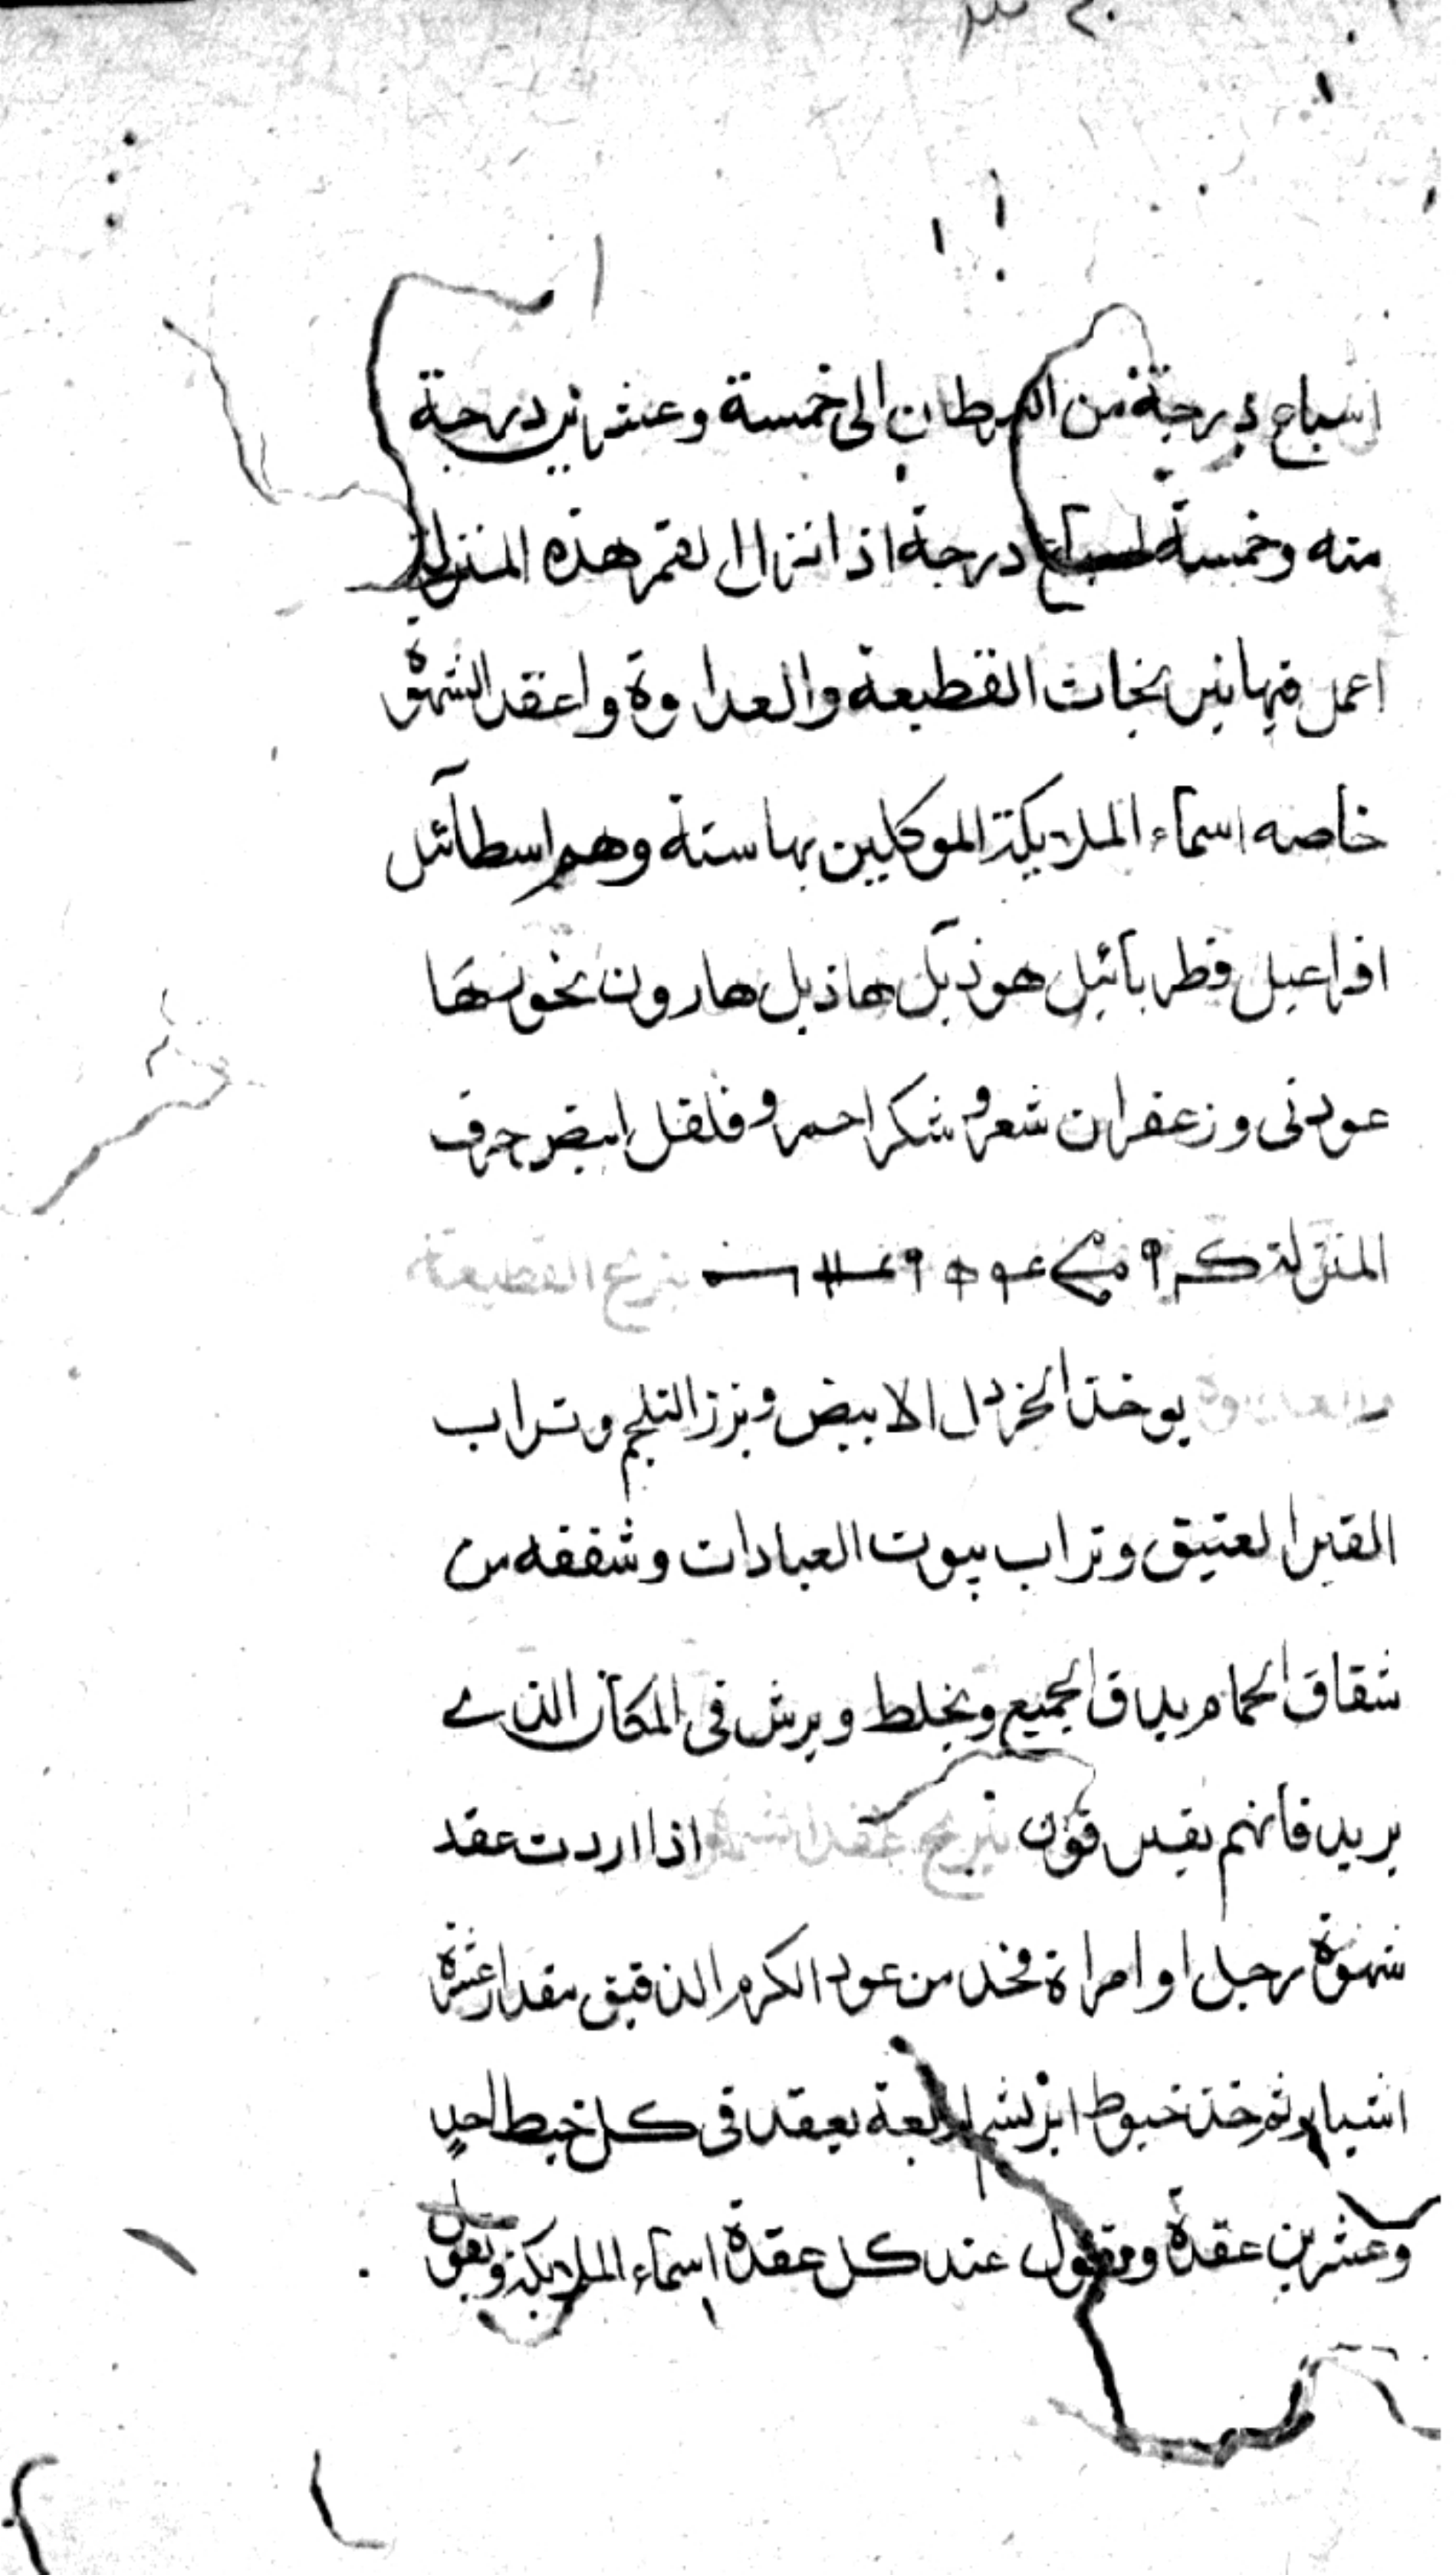 اسباع درجة من السرطان الى خمسة وعشرين درجة
منه وخمسة اسباع درجة اذا نزل القمر هذه المنزلة
اعمل فيها نيرنجات القطيعة والعداوة واعقد الشهوة
خاصه اسماء الملايكة الموكلين بها ستة وهم اسطائل
افراعيل قطريائيل هوذيل هاذيل هارون بخورها
عود ني وزعفران شعر و شكر احمر و فلفل ابيض حرف
المنزلة
يوخذ الخردل الابيض وبزر الثلجم وتراب
القبر العتيق وتراب بيوت العبادات وشقفه من
شقاق الحمام يدق الجميع ويخلط ويرش في المكان الذي
يريد فانهم يفترقون نيرنج عقد الشهوة اذا اردت عقد
شهوة رجل او امراة فخذ من عود الكرم الدقيق مقدار عشرة
اشبار وثم خذ خيوط ابريشم اربعة يعقد في كل خيط احد
وعشرين عقدة وتقول عند كل عقدة اسماء الملايكة وتقول